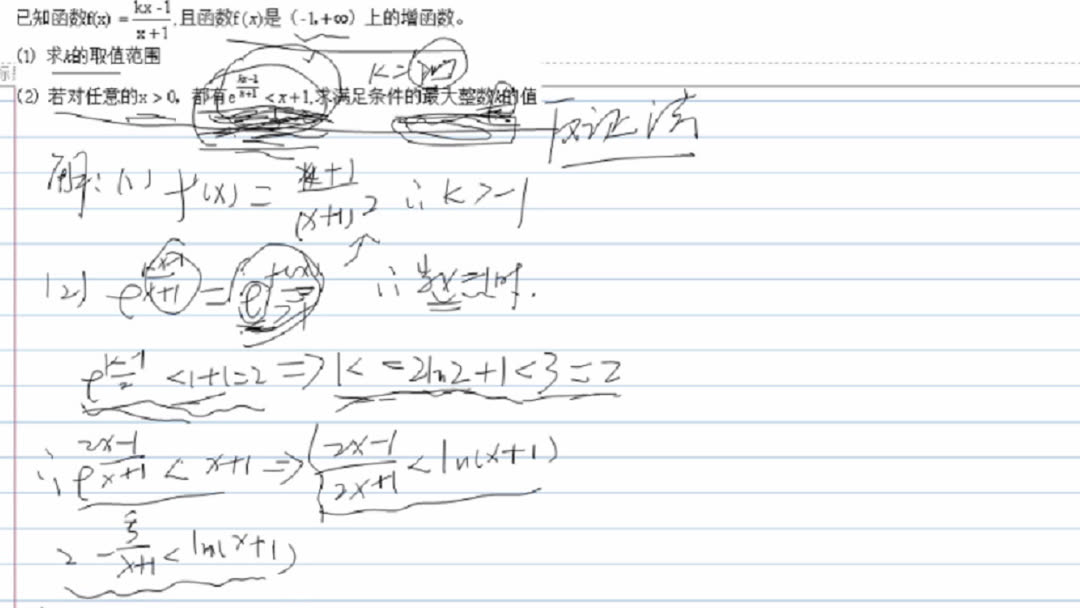 已知函数f(x) = (kx-1)/(x+1),且函数f(x)是(-1,+∞)上的增函数。
(1) 求k的取值范围
K =
(2) 若对任意的x>0,都有e^((kx-1)/(x+1)) <x+1,求满足条件的最大整数k的值
反证法
解:(1) f'(x) = (k+1)/(x+1)² ∴ K>-1
(2) e^((kx-1)/(x+1)) = ∴ 当x=1时.
e^((k-1)/2) <1+1=2 => K < =2ln2+1<3=2
∴ e^((2x-1)/(x+1)) < x+1 => (2x-1)/(2x+1) < ln(x+1)
2 - 3/(x+1) < ln(x+1)